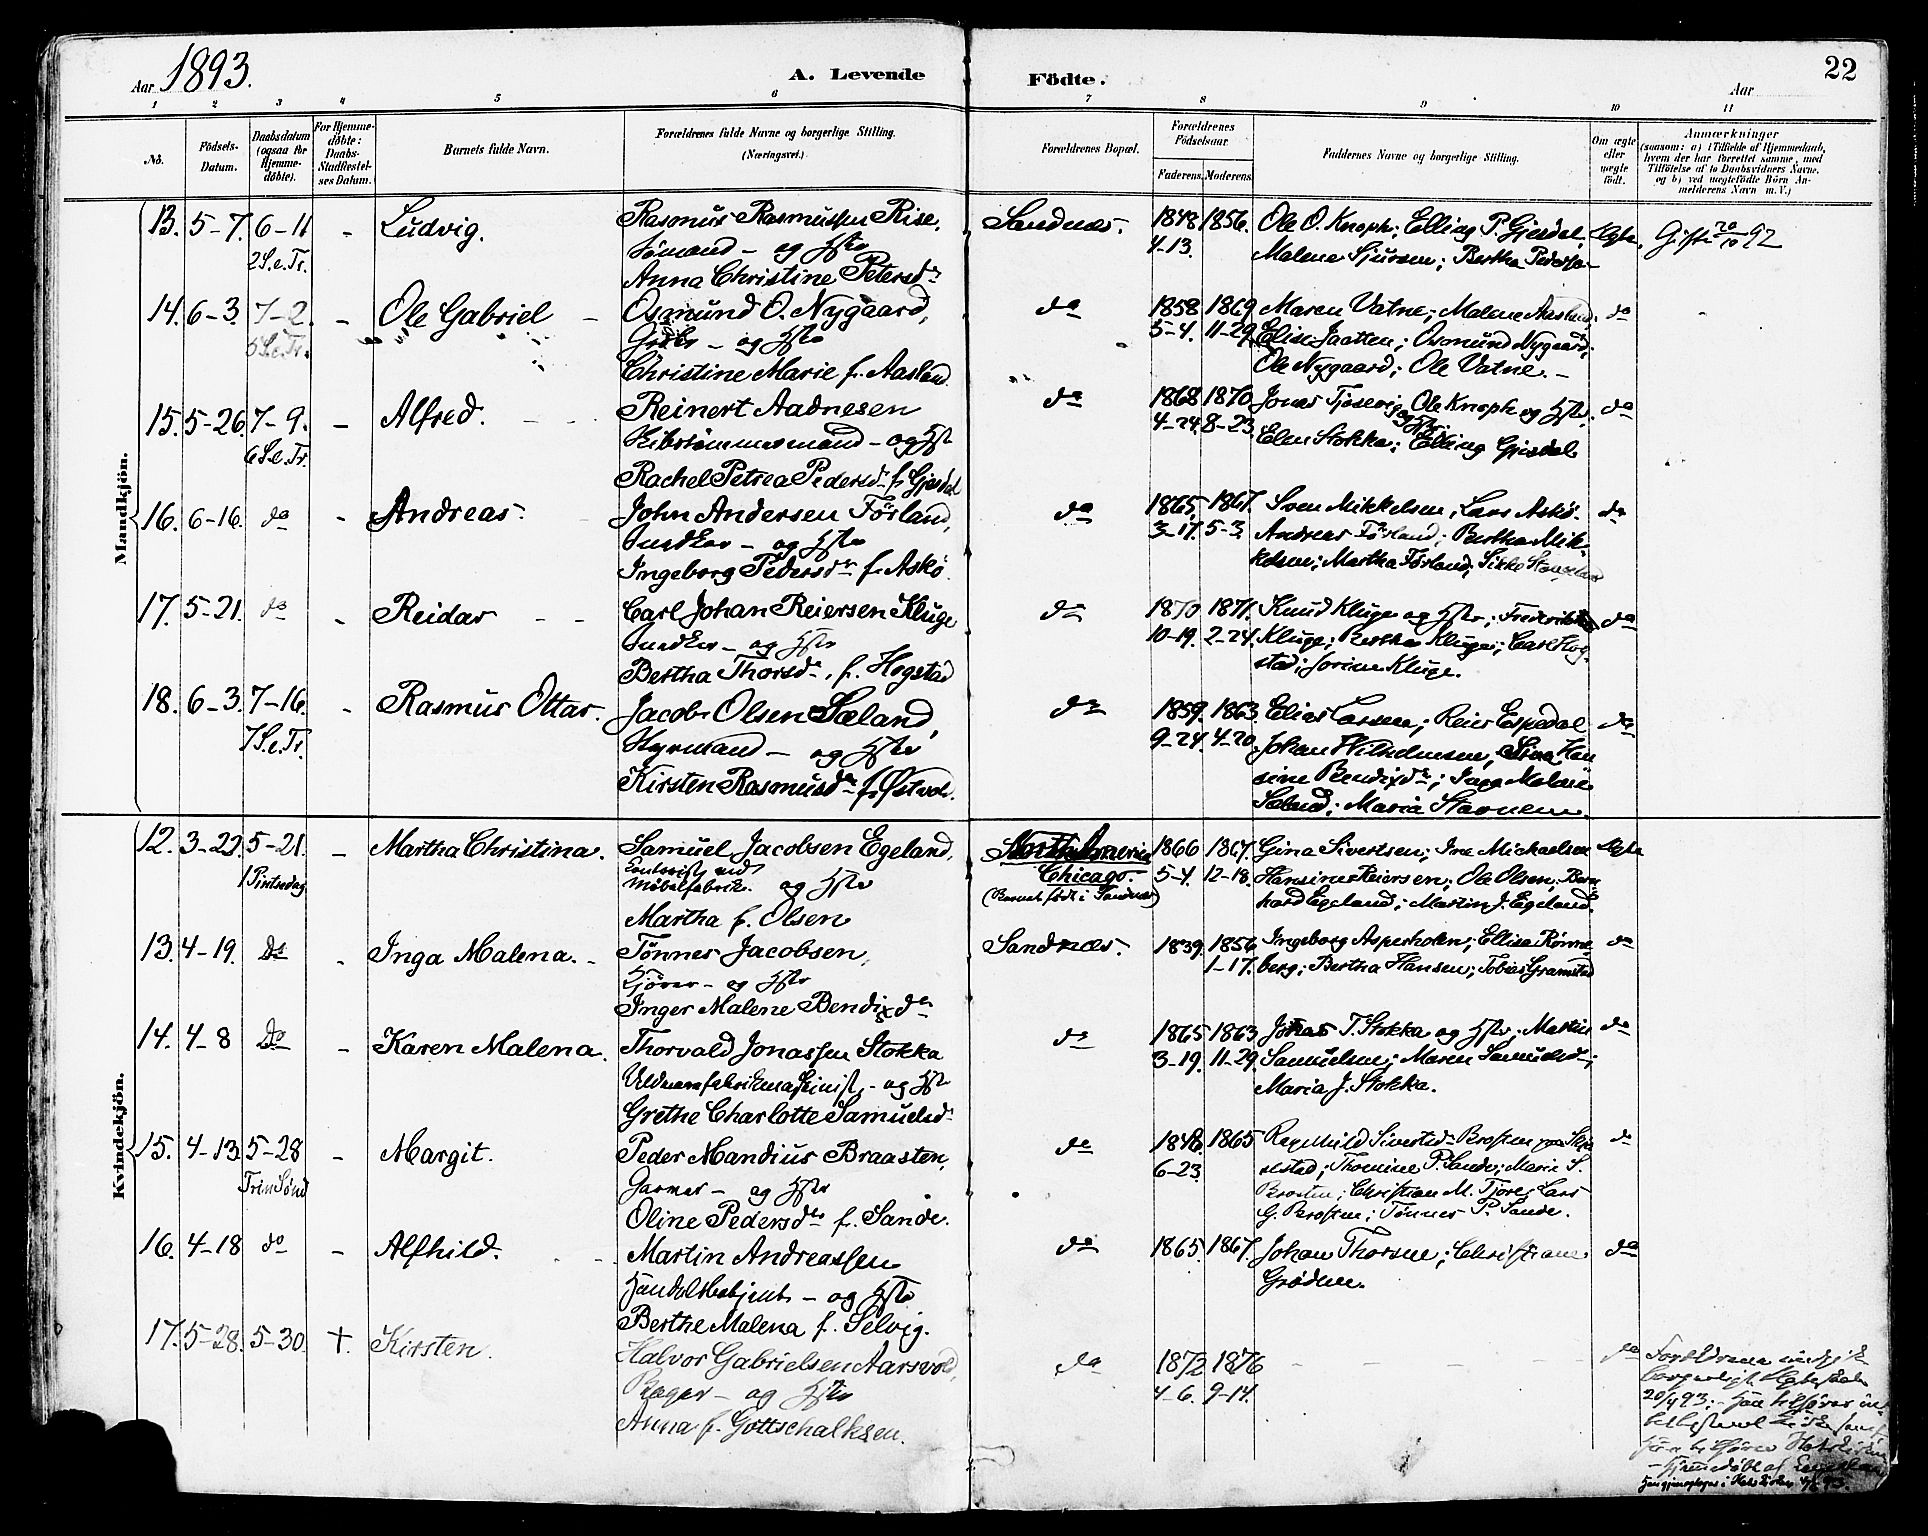 Aar 1893.
A. Levende
Födte.
Aar
22
1 2 3 4 5 6 7 8 9 10 11
No.
Födsels-
Datum.
Daabsdatum
(ogsaa for
Hjemme-
døbte).
For Hjemme-
døbte:
Daabs-
Stadfæstel-
ses Datum.
Barnets fulde Navn.
Forældrenes fulde Navne og borgerlige Stilling.
(Næringsvei.)
Forældrenes Bopæl.
Forældrenes
Födselsaar.
Faderens. Moderens.
Faddernes Navne og borgerlige Stilling.
Om ægte
eller
uægte
født.
Anmærkninger
(saasom: a) i Tilfælde af Hjemmedaab,
hvem der har forrettet samme, med
Tilföielse af to Daabsvidners Navne.
og b) ved uægtefødte Börn An-
melderens Navn m. V.)
Mandkjön.
13. 5-7. 6-11 - Ludvig. Rasmus Rasmussen Rise, Sandnæs. 1848 1856. Ole O. Knoph; Elling P. Gjesdal, Ægte. Gifte 20/10 92
2 S. e. Tr. Sømand - og Hstr 4-13. Malene Sjursen; Bertha Peders
Anna Christine Petersdr
14. 6-3. 7-2. - Ole Gabriel - Osmund O. Nygaard, do 1858 1869 Maren Vatne; Malene Aasland, do
5 S. e. Tr. og Hstr 5-4. 11-29. Elise Jaatten; Osmund Nygaard;
Christine Marie f. Aasland Ole Nygaard; Ole Vatne. -
15. 5-26. 7-9. - Alfred. - Reinert Aadnesen do 1868 1870 Jonas Tjosevig; Ole Knoph og Hstr. do
6 S. e. Tr. Skibstømmermand - og Hstr 4-24. 8-23. Elen Stokka; Elling Gjesdal
Rachel Petrea Pedersdr f. Gjesdal
16. 6-16. do - Andreas. John Andersen Førland, do 1865 1867. Sven Mikkelsen; Lars Askø. do
Snedker - og Hstr 3-17. 5-3. Andreas Førland; Bertha Mik-
Ingeborg Pedersdr f. Askø. kelsen; Martha Førland; Sikke Stangeland
17. 5-21. do - Reidar - - Carl Johan Reiersen Kluge do 1870 1871. Knud Kluge og Hstr; do
Snedker - og Hstr 10-19. 2-24. Kluge; Bertha Kluge; Carl Hog-
Bertha Thorsdr, f. Hogstad stad; Jorine Kluge.
18. 6-3. 7-16. - Rasmus Ottar. Jacob Olsen Sæland, do 1859. 1863. Elias Larsen; Reier Espedal do
7 S. e. Tr. Hyrmand - og Hstr 9-24. 4-20. Johan Wilhelmsen, Stina Han-
Kirsten Rasmusdr f. Østvold. sine Bendixdr; Inga Malene
Sæland; Maria Stavnem.
Kvindekjön.
12. 3-22. 5-21. - Martha Christina. Samuel Jacobsen Egeland, North America 1866 1867. Gina Sivertsen; Ine Mickaelsen Ægte
1 Pintsedag ved Chicago. 5-4. 12-18. Hansine Reiersen; Ole Olsen; Bern-
Møbelfabrik. og Hstr (Barnet født i Sandnæs) hard Egeland; Martin J. Egeland.
Martha f. Olsen
13. 4-19. do - Inga Malena. - Tønnes Jacobsen, Sandnæs. 1839. 1856 Ingeborg Aspersholen; Ellisa Rønne- do
Kjører - og Hstr 1-17. berg; Bertha Hansen; Tobias Gramstad
Inger Malene Bendixdr
14. 4-8 do - Karen Malena. Thorvald Jonassen Stokka do 1865 1863 Jonas T. Stokka og Hstr; Martin do
Uldvarefabrikmaskinist, - og Hstr 3-19. 11-29. Samuelsen; Maren Samuelsdr;
Grethe Charlotte Samuelsdr Maria J. Stokka.
15. 4-13 5-28 - Margit. Peder Mandius Braasten, do 1848 1865 Ragnhild Sivertsdr Brosten do
Trin. Sønd Garver - og Hstr 6-23. Thomine P. Sande; Marie S.
Oline Pedersdr f. Sande. Brosten; Christian M. Tjore; Lars
G. Brosten; Tønnes P. Sande.
16. 4-18 do - Alfhild. - - Martin Andreassen do 1865 1867. Johan Thorsen; Christiane do
Handelsbetjent - og Hstr Grødem.
Berthe Malena f. Selvig.
17. 5-28. 5-30. † Kirsten. Halvor Gabrielsen Aarsvold, do 1872 1876 - - - - do Forældrene indgik
Bager - og Hstr 4-6. 9-14. borgerligt Ægteskab
Anna f. Gottschalksen. 20/4 93.
Hjemmedøbt af